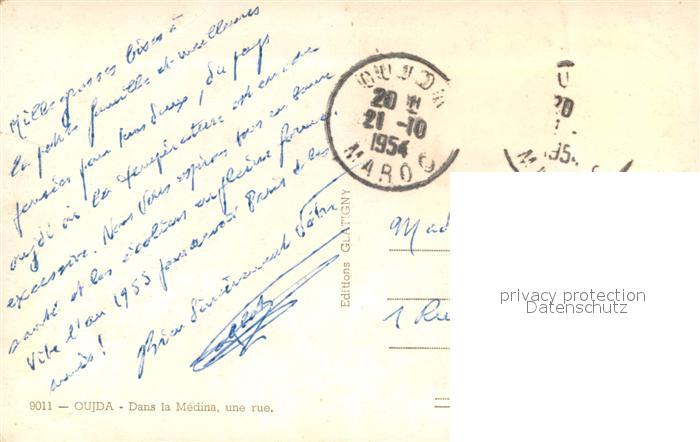 Mille grosses bises à
la petite famille et meilleures
pensées pour tous deux, du pays
oujdi où la température est encore
excessive. Nous vous espérons tous en bonne
santé et les écoliers en pleine forme.
Vite l'an 1955 pour revoir Paris et les
amis!
Bien sincèrement vôtre
OUJDA
20 H
21-10
1954
MAROC
U
20
1-
1954
MA
Editions GLATIGNY
Mad
1 Rue
privacy protection
Datenschutz
9011 — OUJDA - Dans la Médina, une rue.